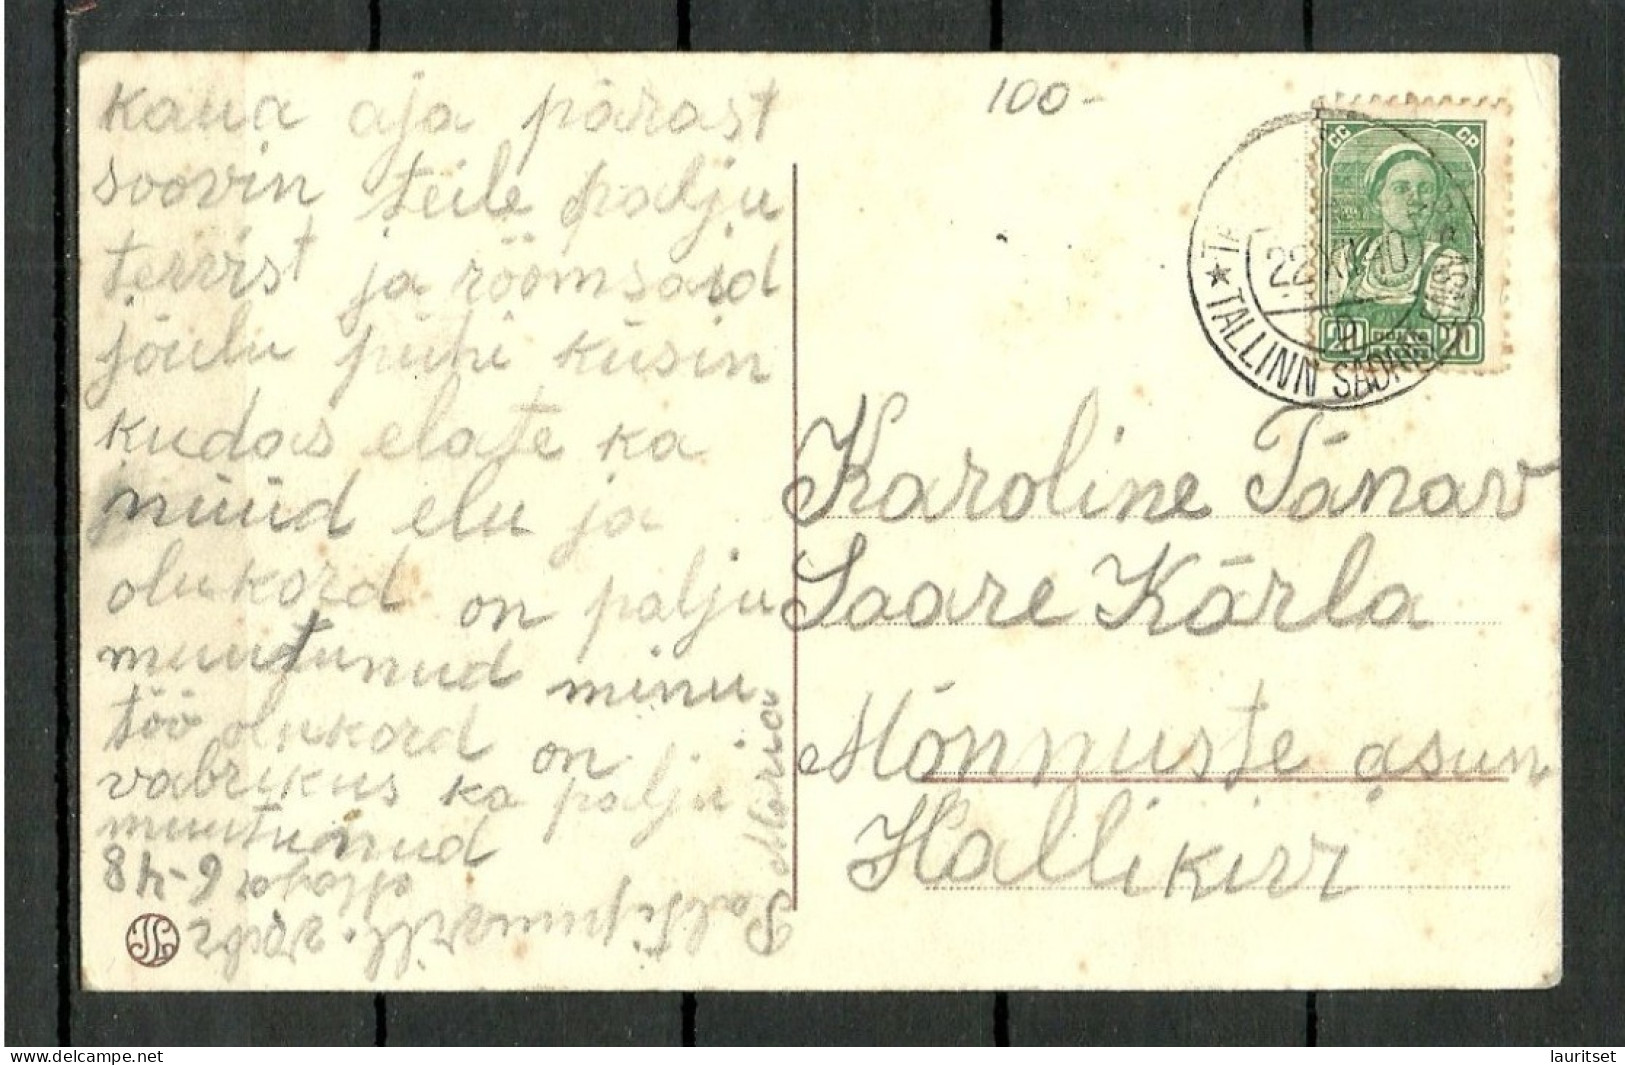 kaua aja pärast
soovin teile palju
tervist ja rõõmsaid
jõulu pühi küsin
kudas elate ka
nüüd elu ja
olukord on palju
muutunud minu
töö olukord on
vabrikus ka palju
muutunud
6-48
100-
СС СР
20 20
22 XII 40
★ TALLINN SADAM
Karoline Tänav
Saare Kärla
Mõnnuste asun
Hallikivi
lauritset
https://www.delcampe.net